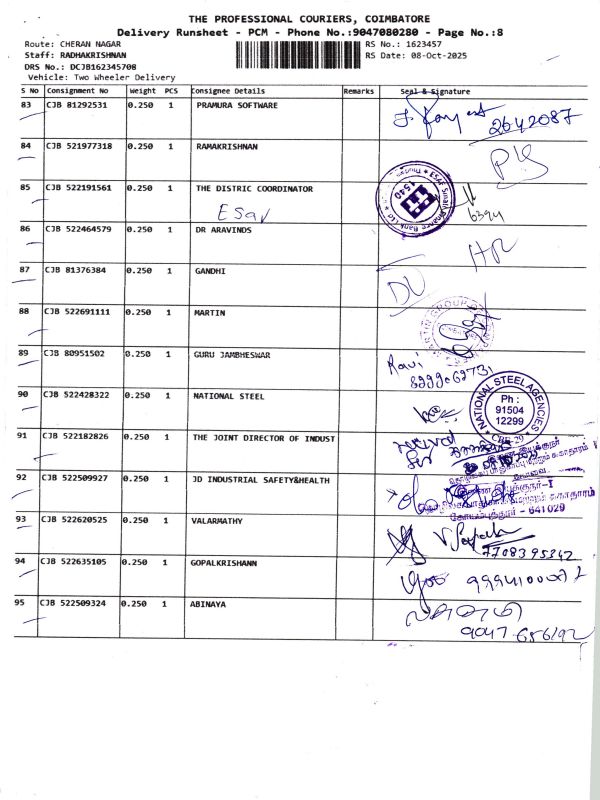 THE PROFESSIONAL COURIERS, COIMBATORE
Delivery Runsheet - PCM - Phone No.:9047080280 - Page No.:8
Route: CHERAN NAGAR RS No.: 1623457
Staff: RADHAKRISHNAN RS Date: 08-Oct-2025
DRS No.: DCJB162345708
Vehicle: Two Wheeler Delivery
S No Consignment No Weight PCS Consignee Details Remarks Seal & Signature
83 CJB 81292531 0.250 1 PRAMURA SOFTWARE
2642087
84 CJB 521977318 0.250 1 RAMAKRISHNAN
85 CJB 522191561 0.250 1 THE DISTRIC COORDINATOR
ESAF
6394
86 CJB 522464579 0.250 1 DR ARAVINDS
87 CJB 81376384 0.250 1 GANDHI
88 CJB 522691111 0.250 1 MARTIN
89 CJB 80951502 0.250 1 GURU JAMBHESWAR
Ravi
90 CJB 522428322 0.250 1 NATIONAL STEEL
NATIONAL STEEL AGENCIES
Ph :
91504
12299
CBE-29
91 CJB 522182826 0.250 1 THE JOINT DIRECTOR OF INDUST
92 CJB 522509927 0.250 1 JD INDUSTRIAL SAFETY&HEALTH
கோயம்புத்தூர் - 641 029
93 CJB 522620525 0.250 1 VALARMATHY
7708395342
94 CJB 522635105 0.250 1 GOPALKRISHANN
95 CJB 522509324 0.250 1 ABINAYA